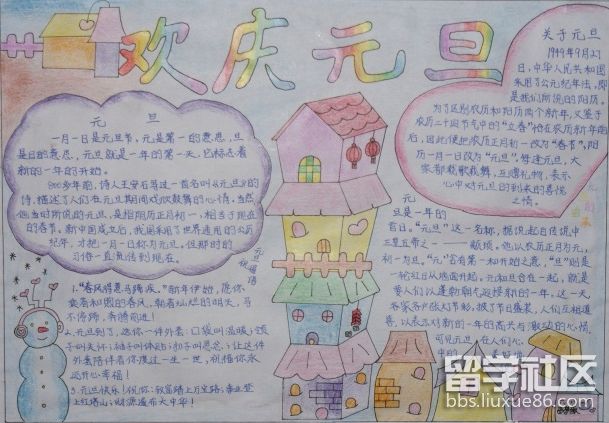 欢庆元旦
元 旦
一月一日是元旦节，元是第一的意思，旦
是日的意思，元旦就是一年的第一天，它标志着
新的一年的开始。
800多年前，诗人王安石写过一首名叫《元旦》的
诗，描述了人们在元旦期间的心情。当然
他当时所说的元旦，是指阴历正月初一，相当于现在
的春节。新中国成立后，我国采用了世界通用的公历
纪年，才把一月一日称为元旦。但那时的
习俗一直流传到现在。
关于元旦
1949年9月27
日，中华人民共和国
采用了公元纪年法，即
是我们所说的阳历，
为了区别农历和阳历两个新年，又鉴于
农历二十四节气中的“立春”恰在农历新年前
后，因此便把农历正月初一改为“春节”，阳
历一月一日改为“元旦”，每逢元旦，大
家都载歌载舞，互赠礼物，表示
心中对元旦的到来的喜悦
之情。
元旦祝福语
1.“春风得意马蹄疾”，新年伊始，愿你
乘着和煦的春风，朝着灿烂的明天，马
不停蹄，奔腾前进！
2.元旦到了，送你一件外套：口袋叫温暖；领
子叫关怀；袖子叫体贴；扣子叫思念；让这件
外套陪伴着你度过一生一世，祝福你永
远开心幸福！
3.元旦快乐！祝你：致富踏上万宝路；事业登
上红塔山；财源遍布大中华！
元
旦是一年的
首日。“元旦”这一名称，据说起自传说中
三皇五帝之一——颛顼。他以农历正月为元，
初一为旦。“元”含有第一和开始之意，“旦”则是
一轮红日从地面升起。元和旦合在一起，就是
要人们以蓬勃朝气迎接新的一年。这一天
各家各户张灯节彩，披了节日盛装，人们互相道
喜，以表示对新的一年的高兴与激动的心情。
可见元旦，在人们心
中的
留学社区
bbs.liuxue86.com